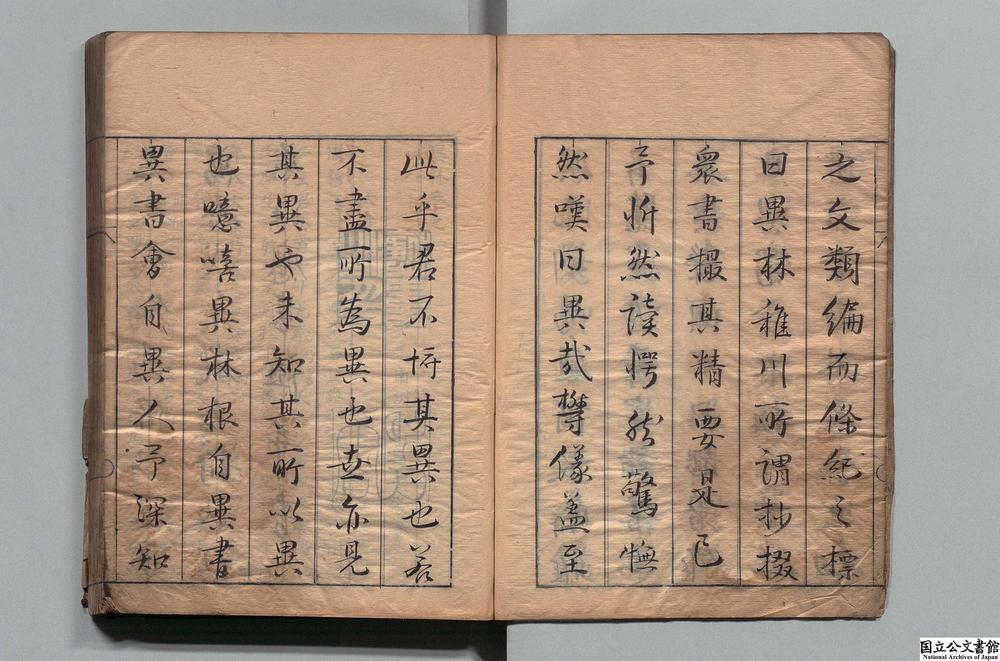 之文類編而條紀之標
曰異林稚川所謂抄掇
衆書撮其精要是已
予忻然讀愕然驚憮
然嘆曰異哉欝儀盖至
此乎君不忻其異也若
不盡所為異也世亦見
其異也未知其所以異
也噫嘻異林根自異書
異書會自異人予深知
国立公文書館
National Archives of Japan